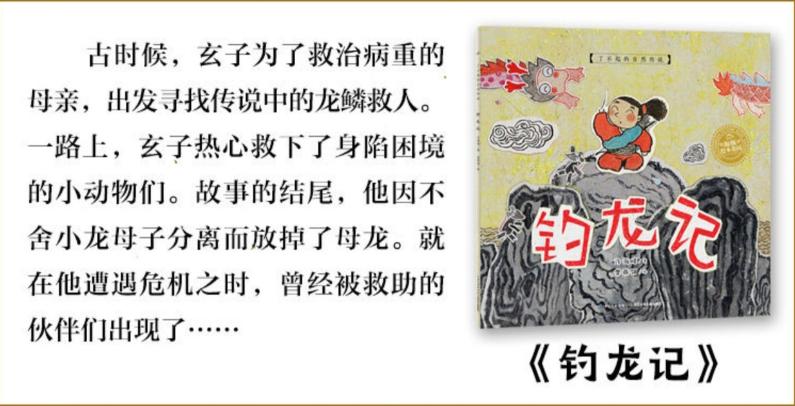 古时候，玄子为了救治病重的
母亲，出发寻找传说中的龙鳞救人。
一路上，玄子热心救下了身陷困境
的小动物们。故事的结尾，他因不
舍小龙母子分离而放掉了母龙。就
在他遭遇危机之时，曾经被救助的
伙伴们出现了……
【了不起的自然传说】
钓龙记
《钓龙记》